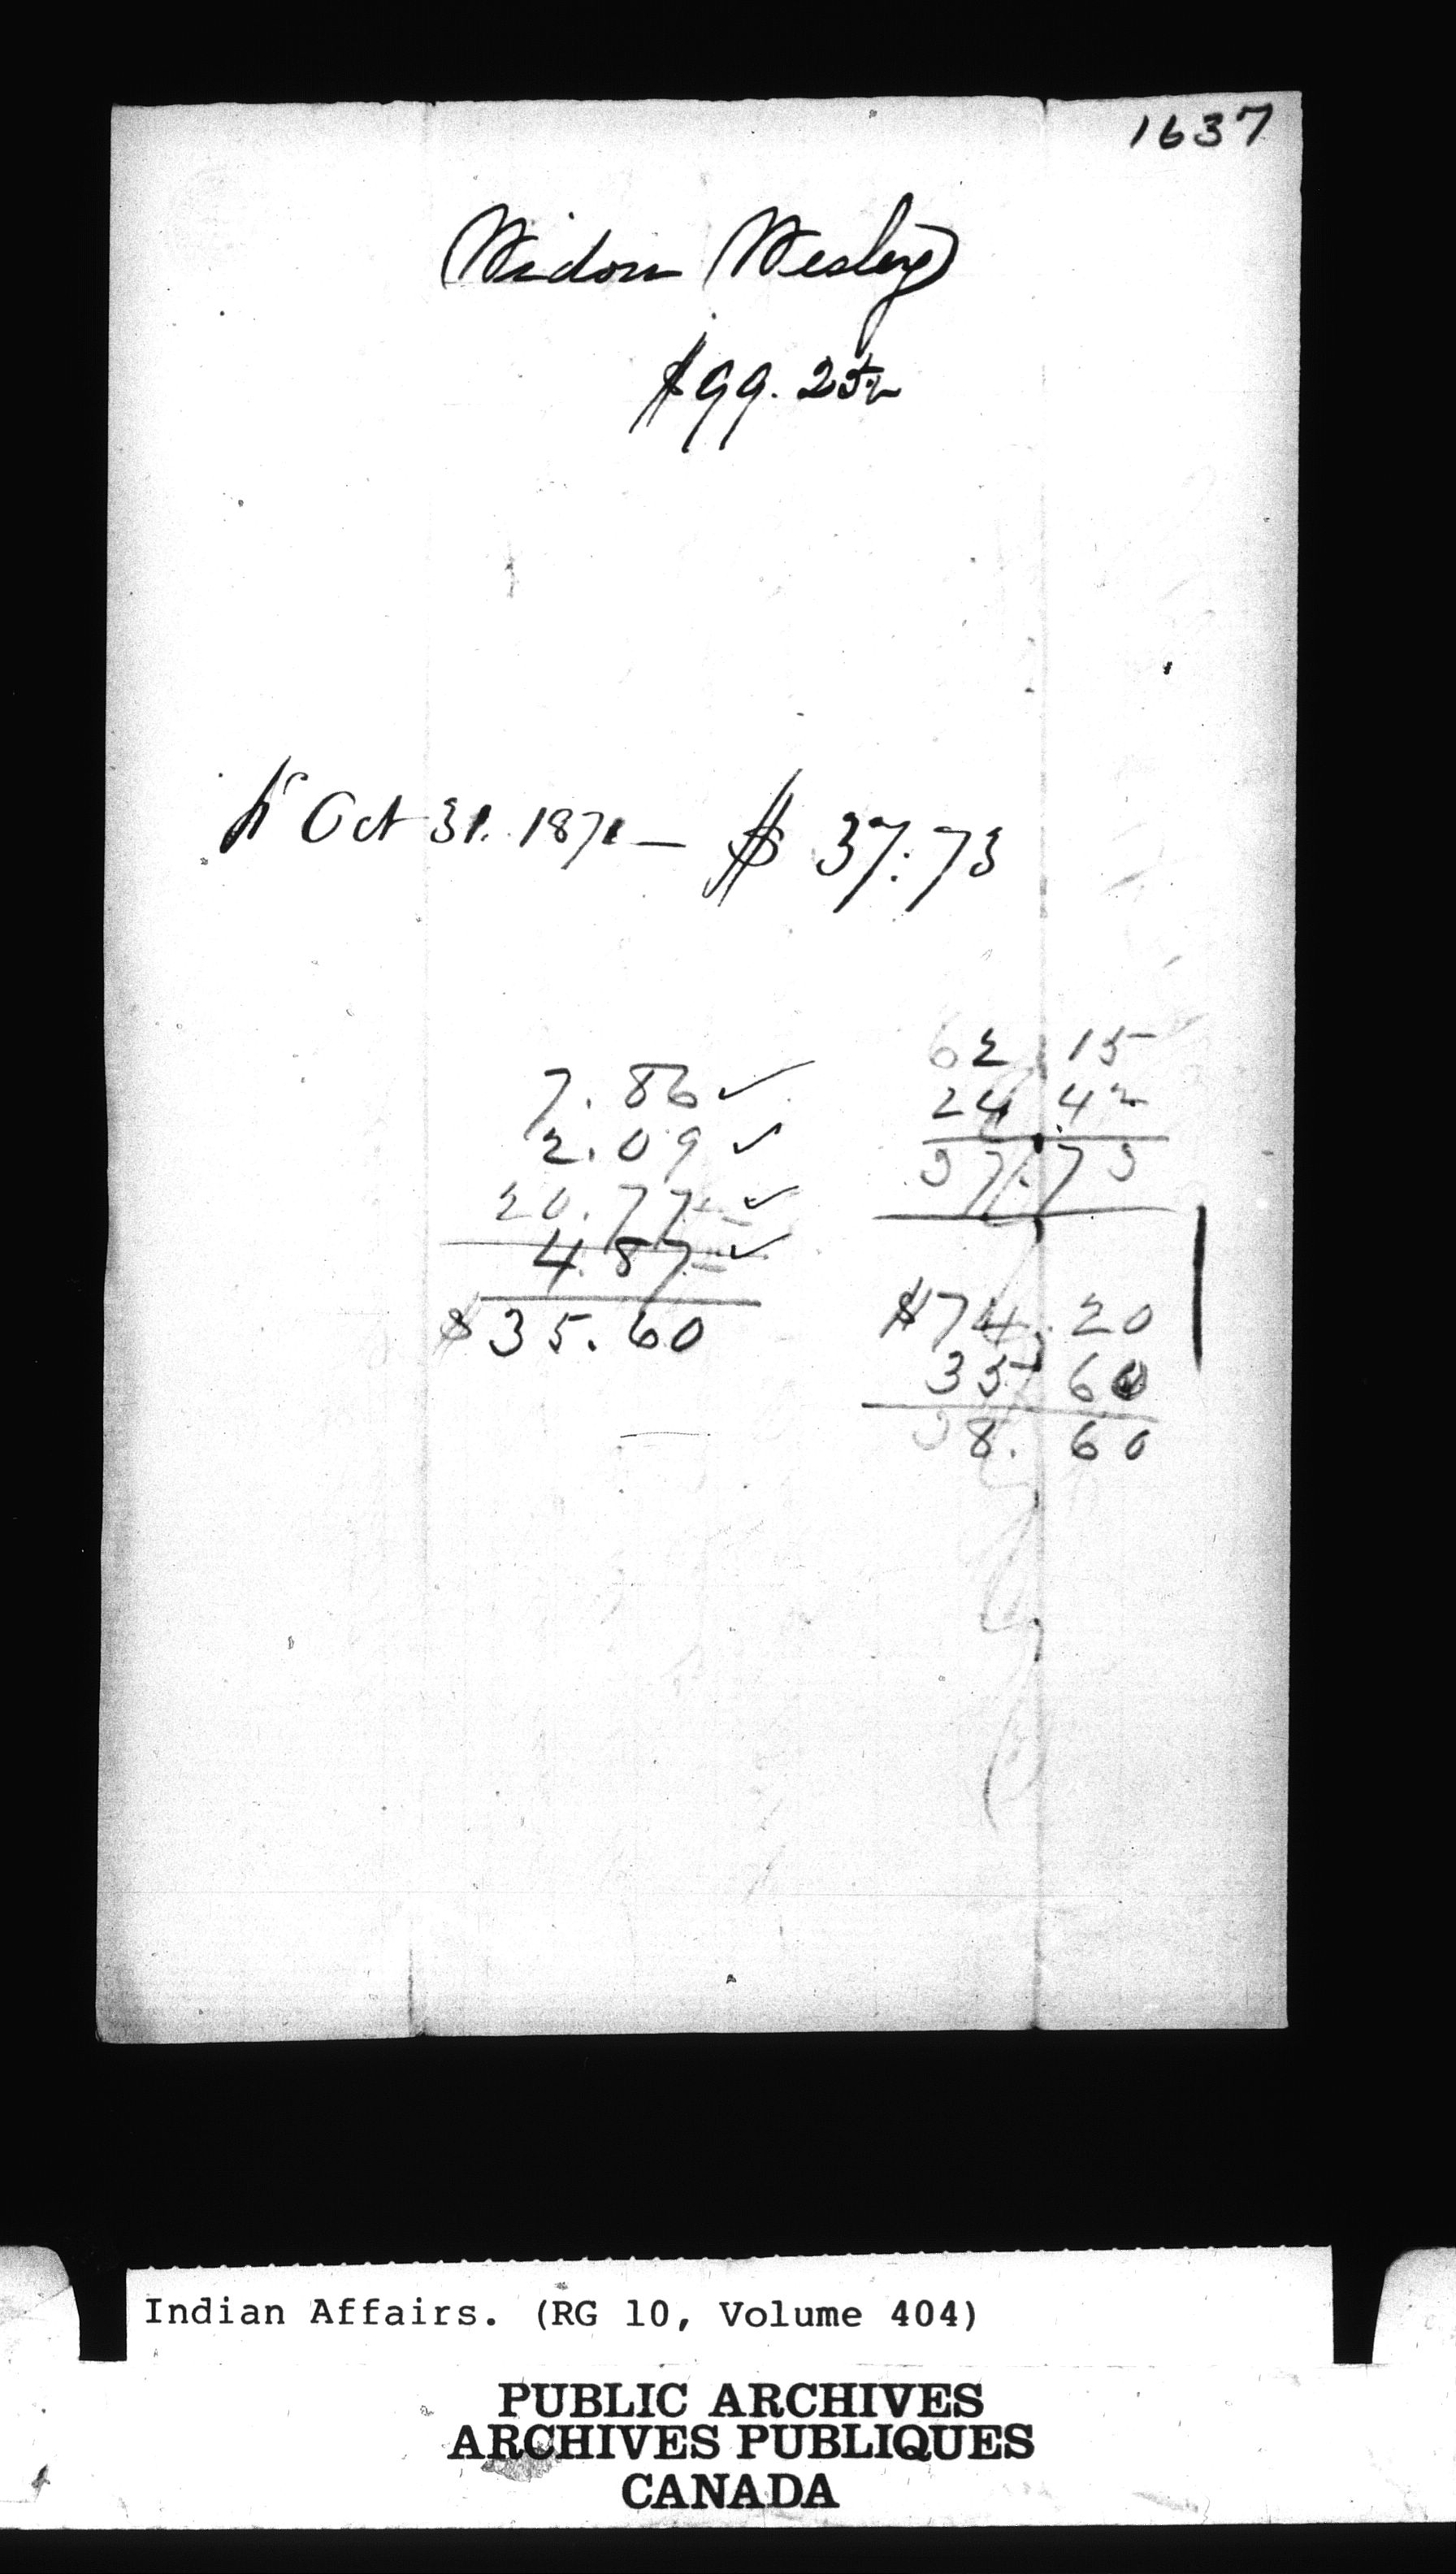 1637
Widow Wesley
$99.25
Oct 31. 1871 — $ 37.73
62.15
24.42
37.73
7.86 ✓
2.09 ✓
20.77 ✓
4.87 ✓
$35.60
$74.20
35.60
38.60
Indian Affairs. (RG 10, Volume 404)
PUBLIC ARCHIVES
ARCHIVES PUBLIQUES
CANADA